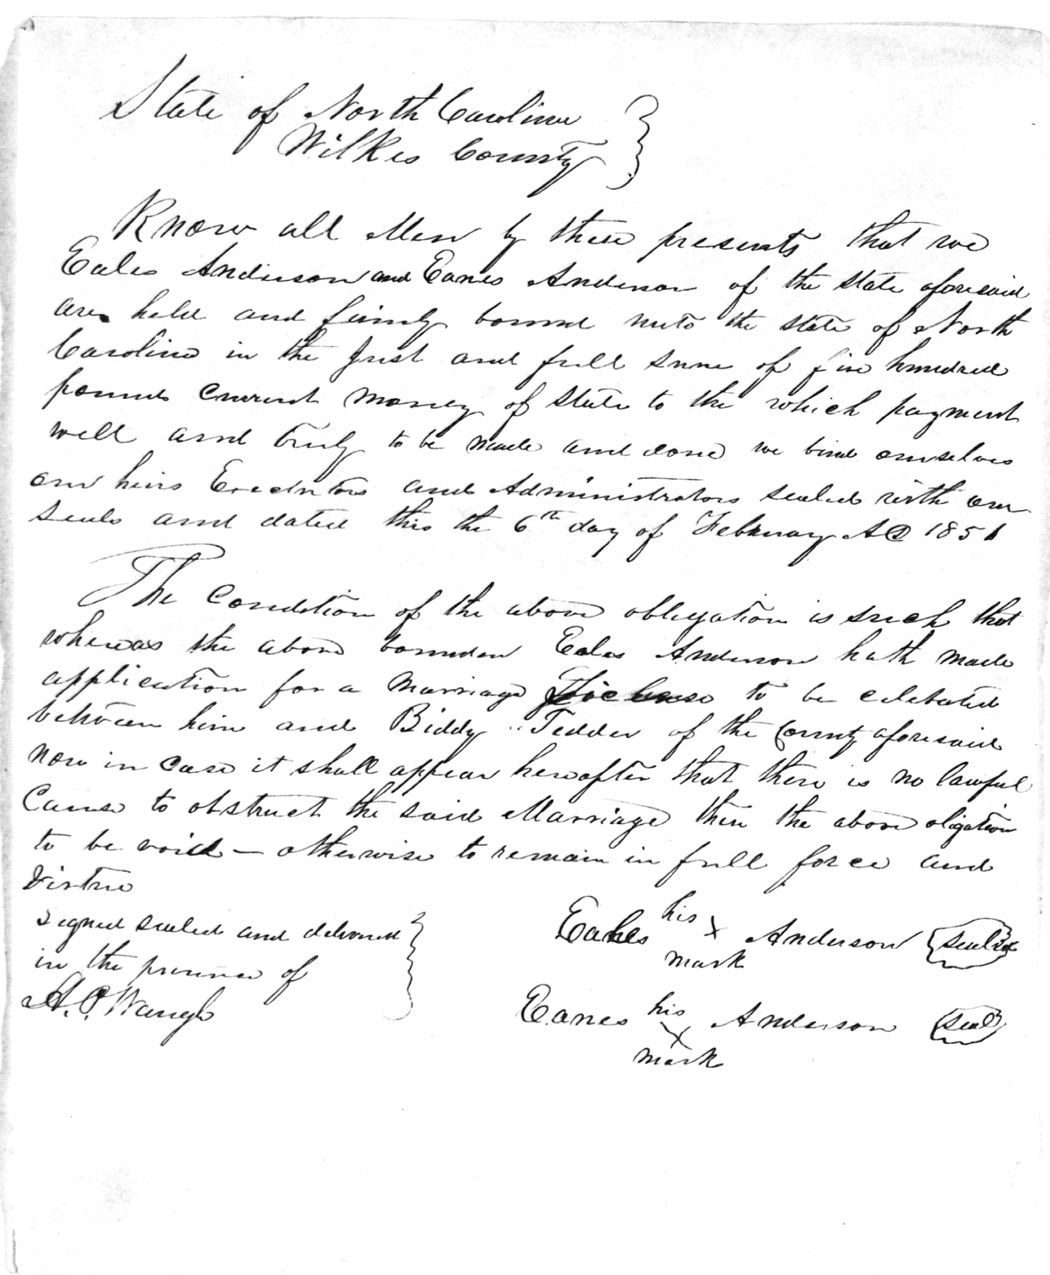 State of North Carolina
Wilkes County
Know all Men by these presents that we
Eales Anderson and Eanes Anderson of the State aforesaid
are held and firmly bound unto the state of North
Carolina in the Just and full Sum of five hundred
pounds Current Money of State to the which payment
well and truly to be made and done we bind ourselves
our heirs Executors and Administrators sealed with our
Seals and dated this the 6th day of February AD 1851
The Condition of the above obligation is such that
whereas the above bounden Eales Anderson hath made
application for a Marriage License to be celebrated
between him and Biddy Tedder of the County aforesaid
Now in Case it shall appear hereafter that there is no lawful
Cause to obstruct the said Marriage then the above oligation
to be void — otherwise to remain in full force and
Virtue
Signed sealed and delivered
in the presence of
A. C. Waugh
his
Eales x Anderson seal
mark
his
Eanes x Anderson seal
mark